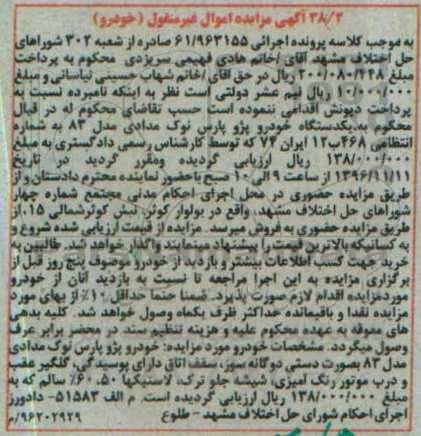 ۳۸/۲ آگهی مزایده اموال غیرمنقول (خودرو)
به موجب کلاسه پرونده اجرائی ۶۱/۹۶۳۱۵۵ صادره از شعبه ۳۰۲ شوراهای
حل اختلاف مشهد آقای /خانم هادی فهیمی سریزدی محکوم به پرداخت
مبلغ ۲۰۰/۰۸۰/۴۴۸ ریال در حق آقای /خانم شهاب حسینی نیاسانی و مبلغ
۱۰/۰۰۰/۰۰۰ ریال نیم عشر دولتی است نظر به اینکه نامبرده نسبت به
پرداخت دیونش اقدامی ننموده است حسب تقاضای محکوم له در قبال
محکوم به یکدستگاه خودرو پژو پارس نوک مدادی مدل ۸۳ به شماره
انتظامی ۴۶۸ب۱۲ ایران ۷۴ که توسط کارشناس رسمی دادگستری به مبلغ
۱۳۸/۰۰۰/۰۰۰ ریال ارزیابی گردیده ومقرر گردید در تاریخ
۱۳۹۶/۱۱/۱۱ از ساعت ۹ الی ۱۰ صبح باحضور نماینده محترم دادستان و از
طریق مزایده حضوری در محل اجرای احکام مدنی مجتمع شماره چهار
شوراهای حل اختلاف مشهد، واقع در بولوار کوثر، نبش کوثرشمالی ۱۵، از
طریق مزایده حضوری به فروش میرسد . مزایده از قیمت ارزیابی شده شروع و
به کسانیکه بالاترین قیمت را پیشنهاد مینمایند واگذار خواهد شد. طالبین به
خرید جهت کسب اطلاعات بیشتر و بازدید از خودرو موصوف پنج روز قبل از
برگزاری مزایده به این اجرا مراجعه تا نسبت به بازدید آنان از خودرو
موردمزایده اقدام لازم صورت پذیرد. ضمنا حتما حداقل ۱۰٪ از بهای مورد
مزایده نقدا و باقیمانده حداکثر ظرف یکماه وصول خواهد شد. کلیه بدهی
های معوقه به عهده محکوم علیه و هزینه تنظیم سند در محضر برابر عرف
وصول میگردد. مشخصات خودرو مورد مزایده: خودرو پژو پارس نوک مدادی
مدل ۸۳ بصورت دستی دوگانه سوز، سقف اتاق دارای پوسیدگی، گلگیر عقب
و درب موتور رنگ آمیزی، شیشه جلو ترک، لاستیکها ۵۰، ۶۰٪ سالم که به
مبلغ ۱۳۸/۰۰۰/۰۰۰ ریال ارزیابی گردیده است. م الف ۵۱۵۸۳- دادورز
اجرای احکام شورای حل اختلاف مشهد - طلوع ۹۶۲۰۲۹۲۹/م